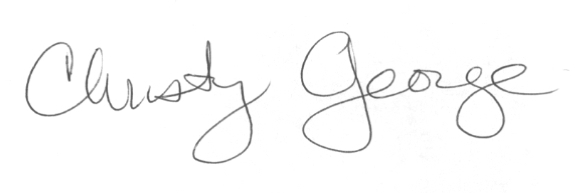 Christy George